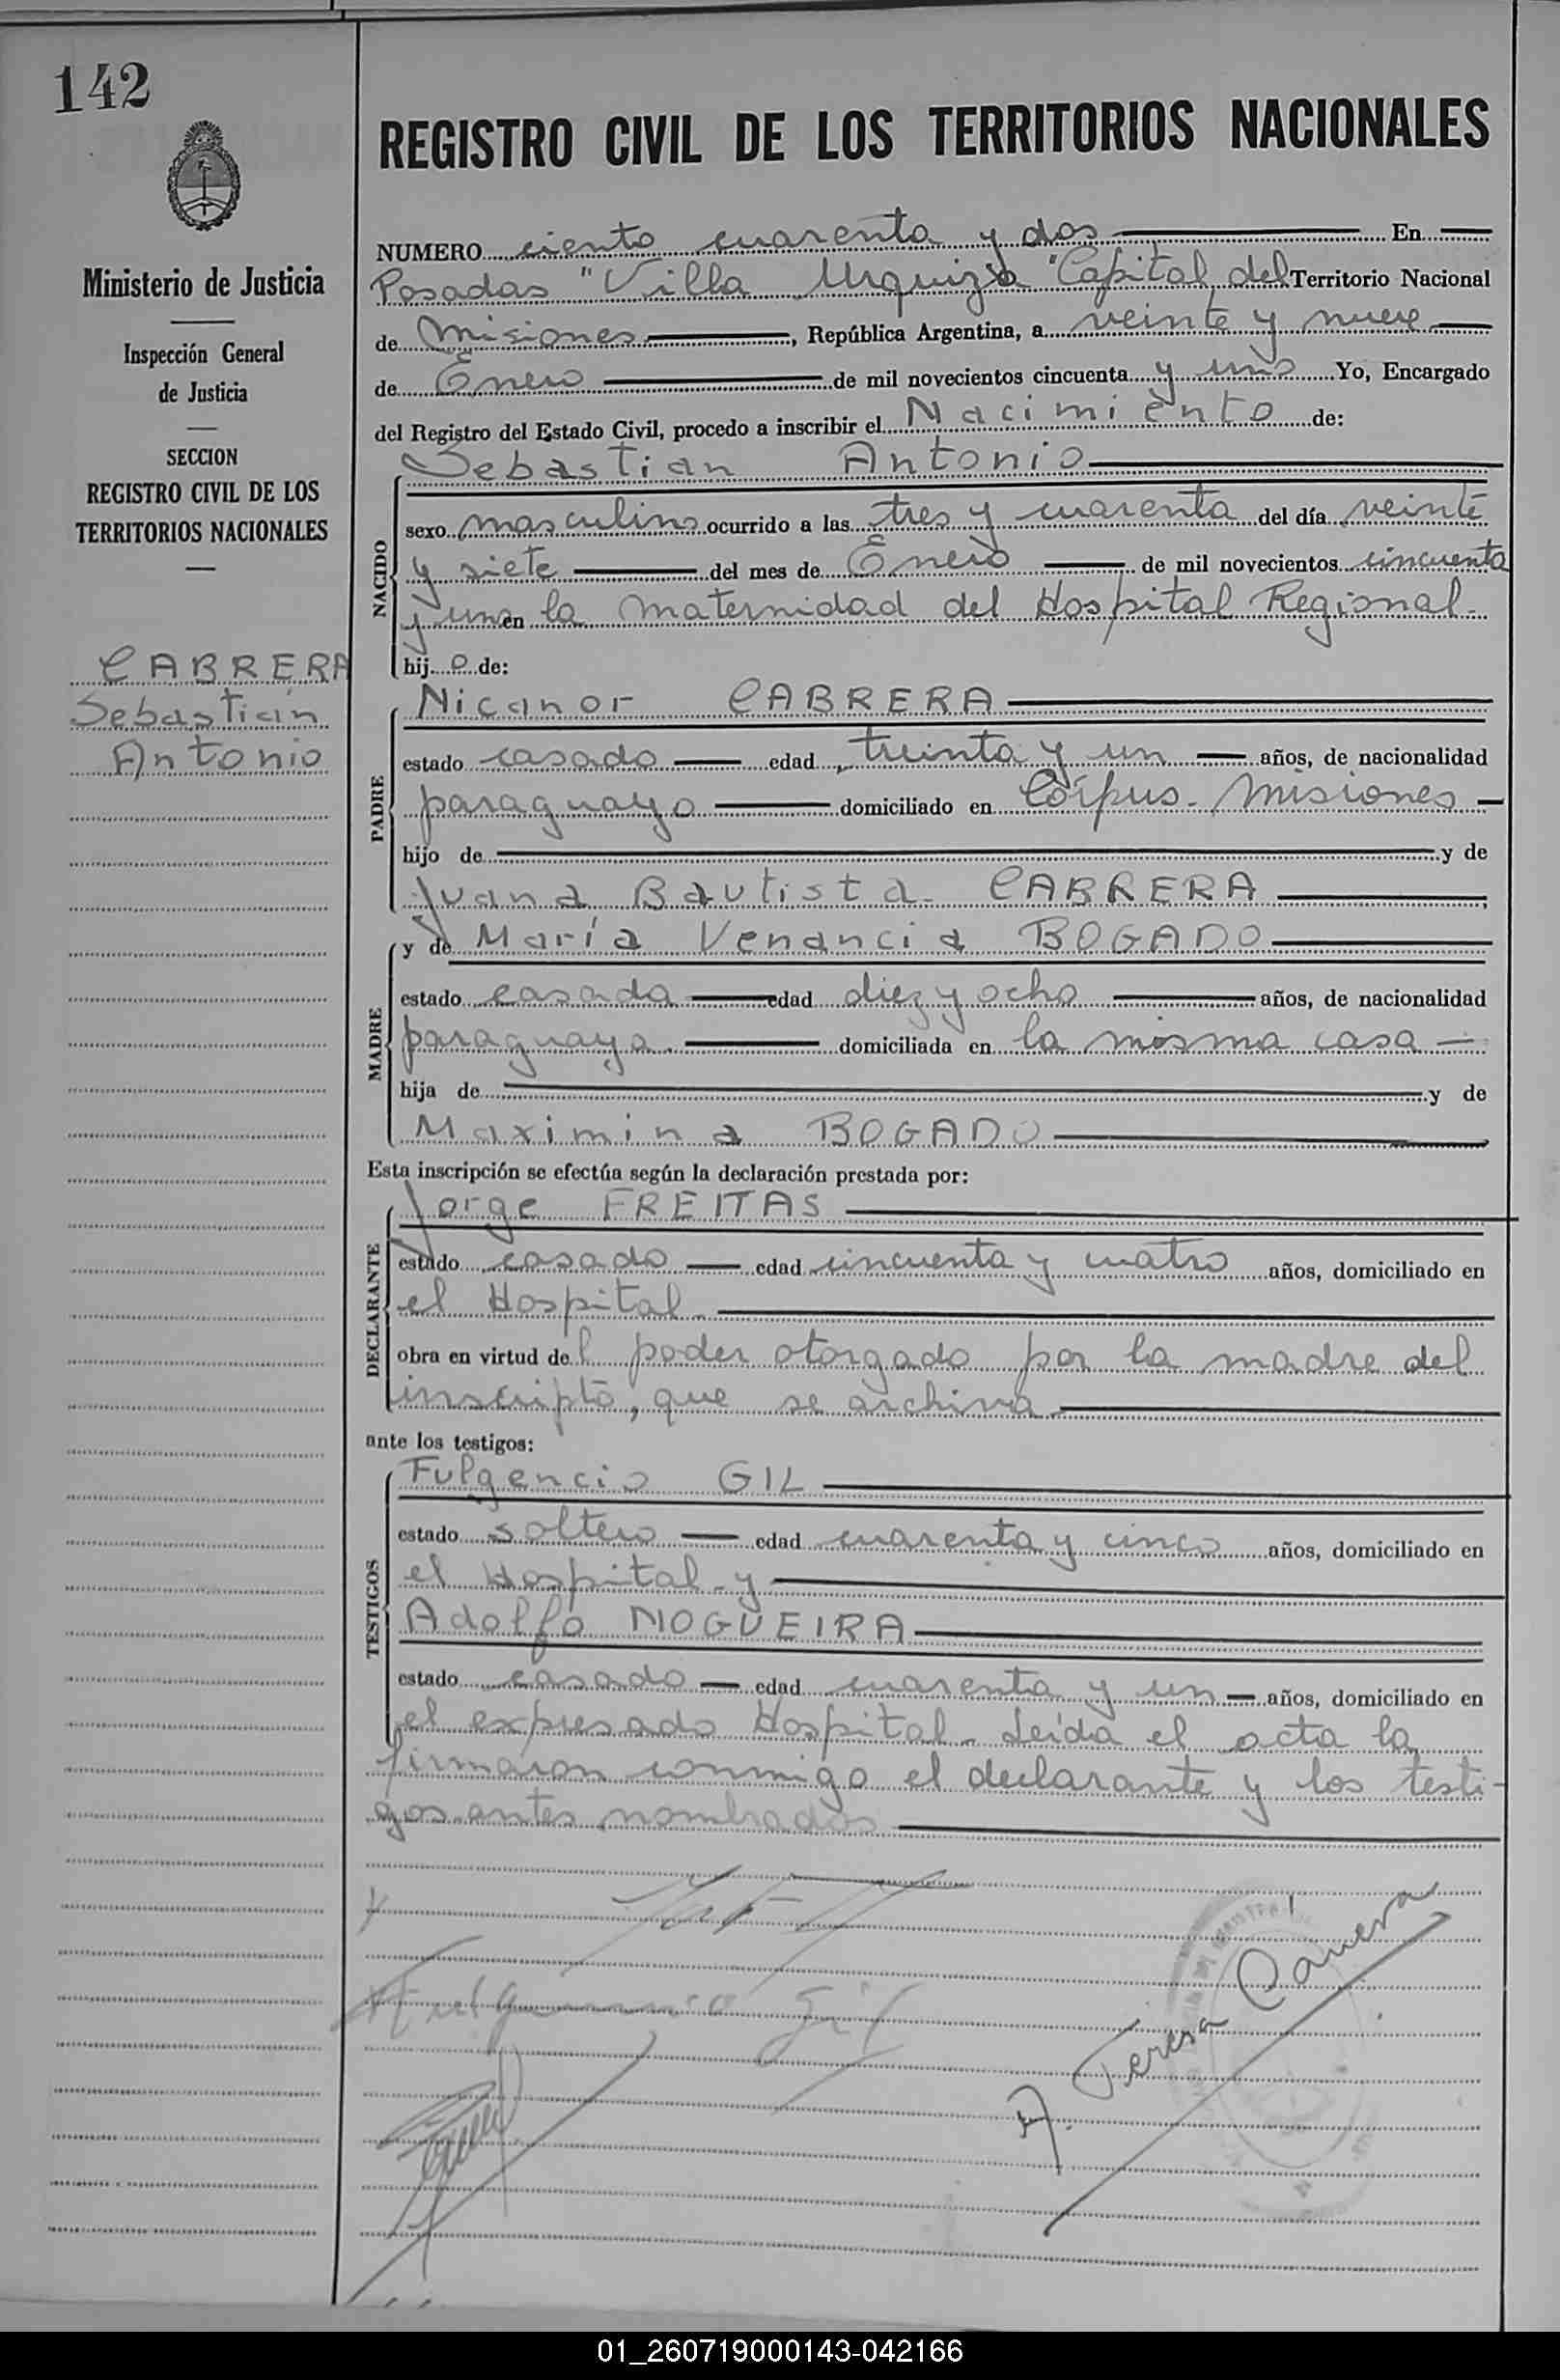 142
Ministerio de Justicia
Inspección General
de Justicia
SECCION
REGISTRO CIVIL DE LOS
TERRITORIOS NACIONALES
CABRERA
Sebastián
Antonio
REGISTRO CIVIL DE LOS TERRITORIOS NACIONALES
NUMERO ciento cuarenta y dos En
Posadas "Villa Urquiza" Capital del Territorio Nacional
de Misiones, República Argentina, a veinte y nueve
de Enero de mil novecientos cincuenta y uno Yo, Encargado
del Registro del Estado Civil, procedo a inscribir el Nacimiento de:
Sebastian Antonio
NACIDO
sexo masculino ocurrido a las tres y cuarenta del día veinte
y siete del mes de Enero de mil novecientos cincuenta
y uno en la maternidad del Hospital Regional-
hij o de:
PADRE
Nicanor CABRERA
estado casado edad treinta y un años, de nacionalidad
paraguayo domiciliado en Corpus-Misiones
hijo de y de
Juana Bautista CABRERA
MADRE
y de María Venancia BOGADO
estado casada edad diez y ocho años, de nacionalidad
paraguaya domiciliada en la misma casa
hija de y de
Maximina BOGADO
Esta inscripción se efectúa según la declaración prestada por:
DECLARANTE
Jorge FREITAS
estado casado edad cincuenta y cuatro años, domiciliado en
el Hospital
obra en virtud de l poder otorgado por la madre del
inscripto, que se archiva
ante los testigos:
TESTIGOS
Fulgencio GIL
estado soltero edad cuarenta y cinco años, domiciliado en
el Hospital y
Adolfo NOGUEIRA
estado casado edad cuarenta y un años, domiciliado en
el expresado Hospital. Leída el acta la
firmaron conmigo el declarante y los testi-
gos antes nombrados
Fulgencio Gil
A. Teresa Canera
01_260719000143-042166